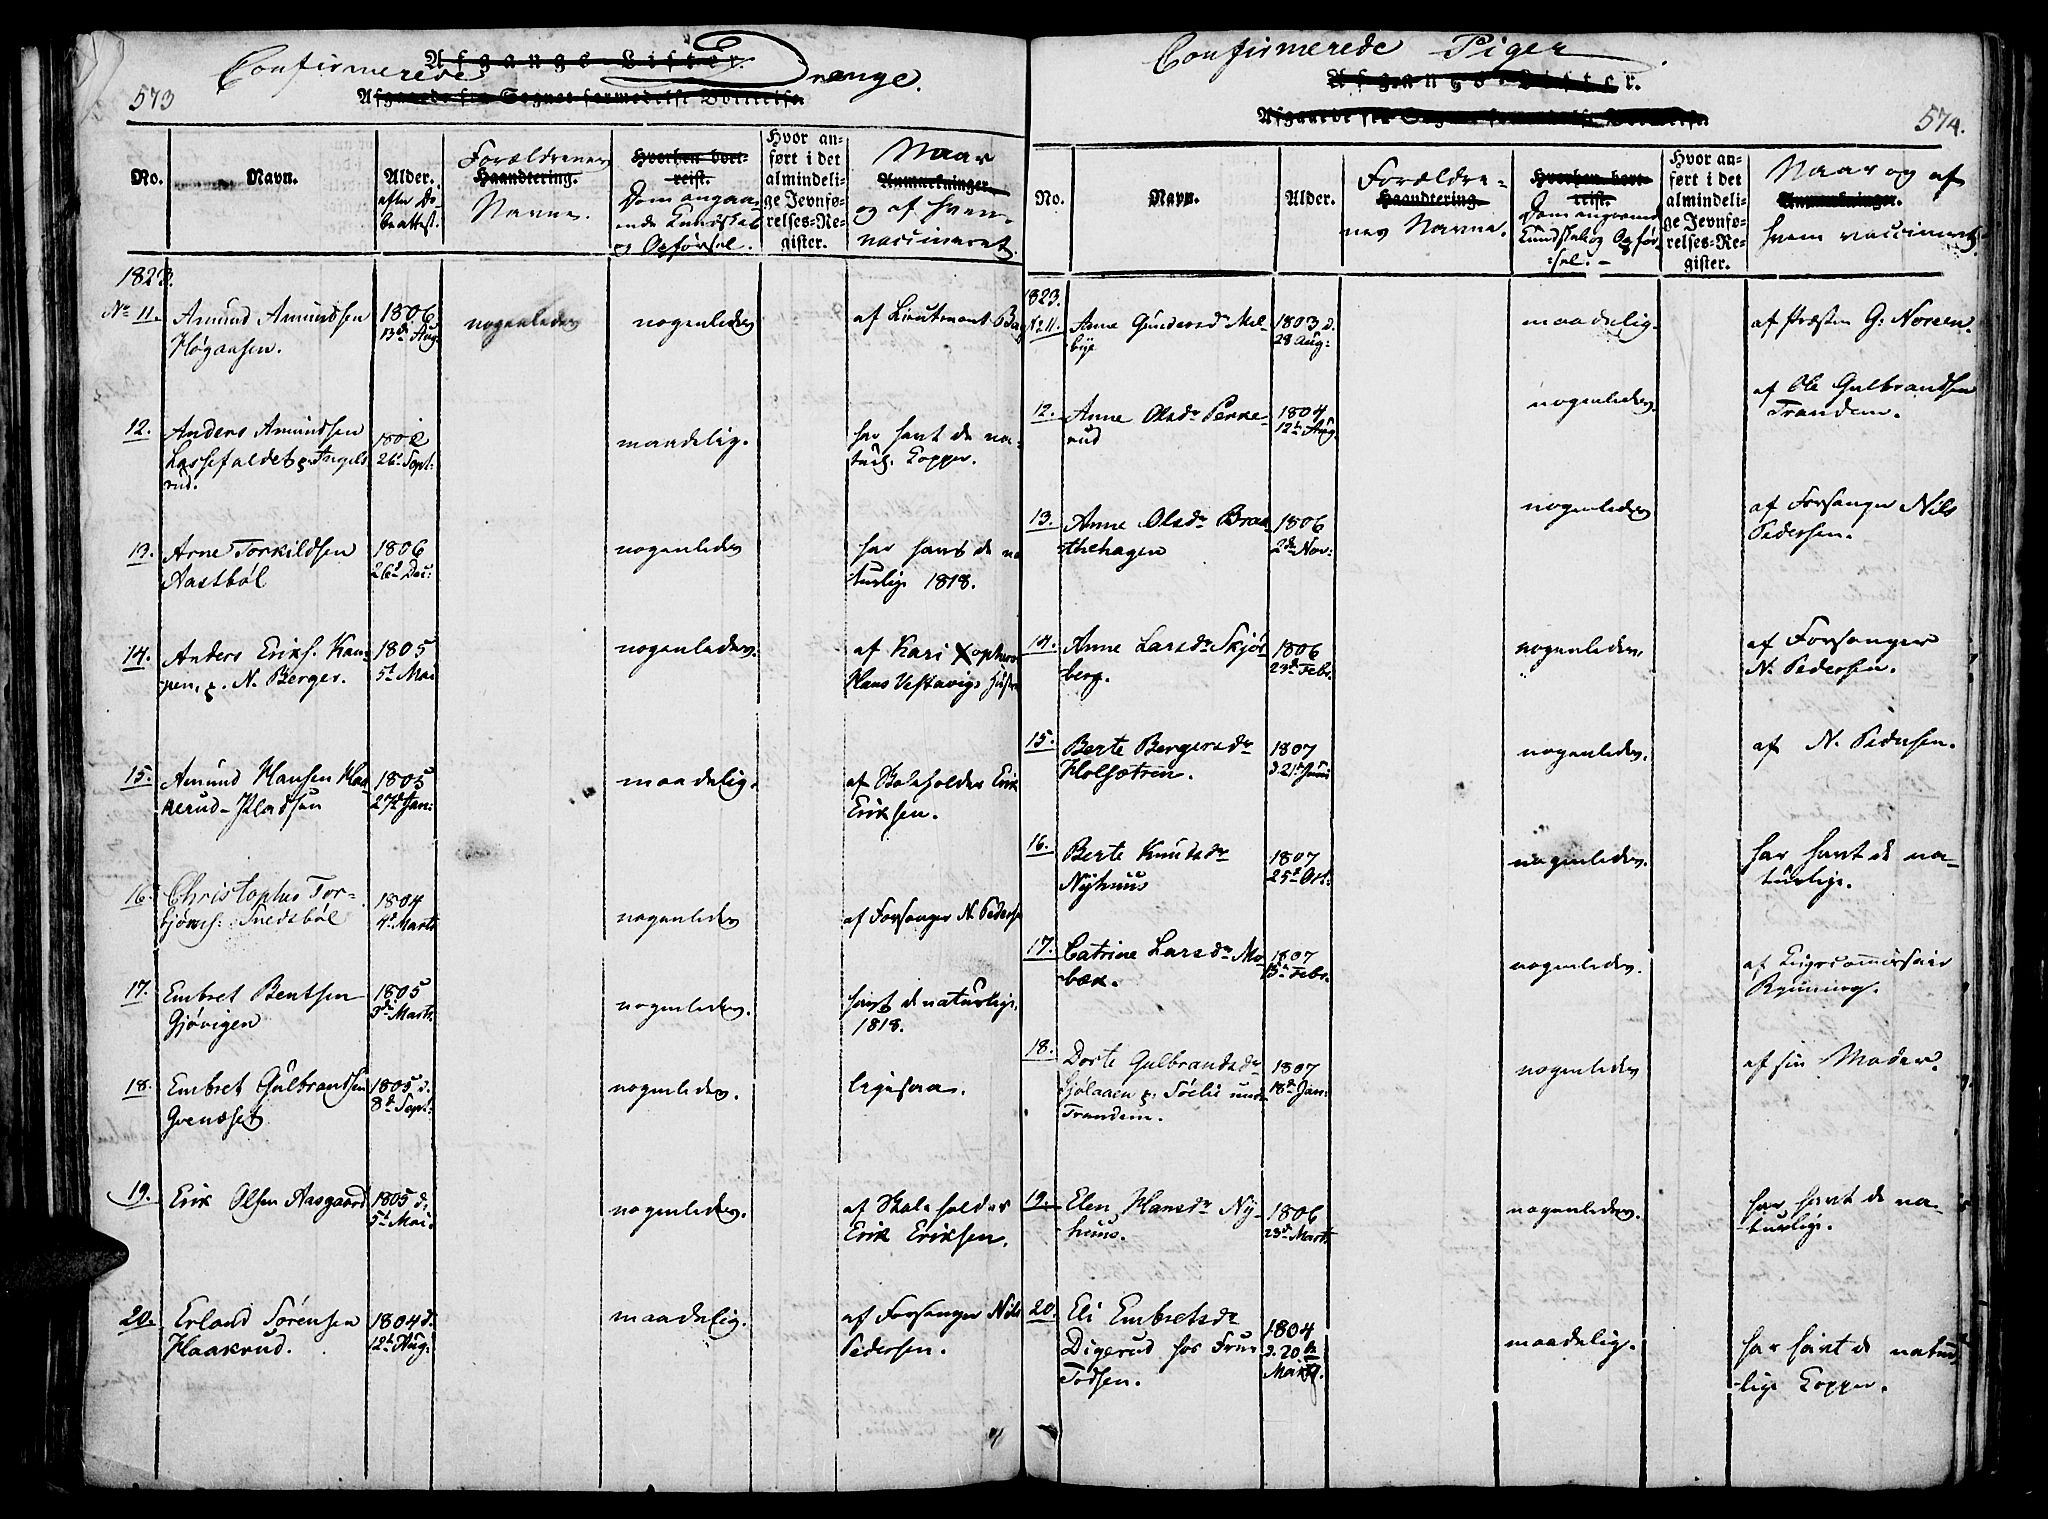 573
Confirmerede Drenge.
Afgangs-Lister.
No.
Navn.
Alder.
efter Dø-
beattest.
Forældrenes
Haandtering.
Navne.
Hvorhen bort-
reist.
Dom angaa-
ende Kundskab
og Opførsel.
Hvor an-
ført i det
almindeli-
ge Jevnfø-
relses-Re-
gister.
Naar
Anmærkninger.
og af hvem
vaccineret.
1823.
No 11.
Amund Amundsen
Høgaasen.
1806
13de Aug
nogenledes
nogenledes
af Lieutnant
12.
Anders Amundsen
Lassefaldet p. Ingels
rud.
1802
26de Sept:
maadelig.
har havt de na-
turl. Kopper.
13.
Arne Torkildsen
Aastbøl
1806
26de Dec:
nogenledes
har havt de na
turlige 1818.
14.
Anders Eriks. Kam-
pen, p. N. Berger.
1805
5te Mai
nogenledes.
af Kari Xophers
Hans Vestavigs Hustr
15.
Amund Hansen Haa-
kerud-Pladsen
1805
27de Jan:
maadelig.
af Skoleholder Erik
Eriksen.
16.
Christopher Tor-
bjørns: Snedsbøl
1804
4de Marts
nogenledes
af Forsanger N. Pederse
17.
Embret Bentsen
Gjøvigen
1805
3de Marts.
nogenledes.
havt de naturlige.
1818.
18.
Embret Gulbrandsen
Grenæset
1805 d.
8de Sept:
nogenledes.
ligesaa.
19.
Erik Olsen Aasgaard
1805 d.
5te Mai.
nogenledes.
af Skoleholder
Erik Eriksen.
20.
Erland Sørensen
Haakrud.
1804 d.
12te Aug:
maadelig.
af Forsanger Nils
Pedersen.
574.
Confirmerede Piger
Afgangs-Lister.
No.
Navn.
Alder.
Forældre-
Haandtering.
nes Navne.
Hvorhen bort-
reist.
Dom angaaend
Kundskab og Opfør
-sel.-
Hvor an-
ført i det
almindeli-
ge Jevnfø-
relses-Re-
gister.
Naar og af
Anmærkninger.
hvem vaccineret.
1823.
No 11.
Anne Gundersdr Mel-
bye
1803 d.
28 Aug:
maadelig.
af Præsten G: Noreen.
12.
Anne Olsdr Perke-
rud
1804
12te Aug.
nogenledes.
af Ole Gulbrandsen
Trandem.
13.
Anne Olsdr Braa-
thehagen
1806
2de Nov:
nogenledes
af Forsanger Nils
Pedersen.
14.
Anne Larsdr Skjør-
berg.
1806
23de Febr.
nogenledes.
af Forsanger
N. Pedersen.
15.
Berte Bergersdr
Holsætrin.
1807
d. 21de Juni
nogenledes.
af N. Pedersen.
16.
Berte Knudsdr
Nyhuus
1807
25de Oct:
nogenledes.
har havt de na-
turlige.
17.
Catrine Larsdr Mo-
bæk.
1807
15de Febr.
nogenledes.
af Krigscommissair
Rynning.
18.
Dorte Gulbrandsdr
Sjølaaen p: Sørlie und.
Trandem.
1807
18de Jan:
nogenledes
af sin Moder.
19.
Elen Hansdr Ny-
huus.
1806
23de Marts.
nogenledes.
har havt de na-
-turlige.
20.
Eli Embretsdr
Digerud hos Frue
Todsen.
1804
d. 20de
Mai
maadelig.
har havt de natur
-lige Kopper.